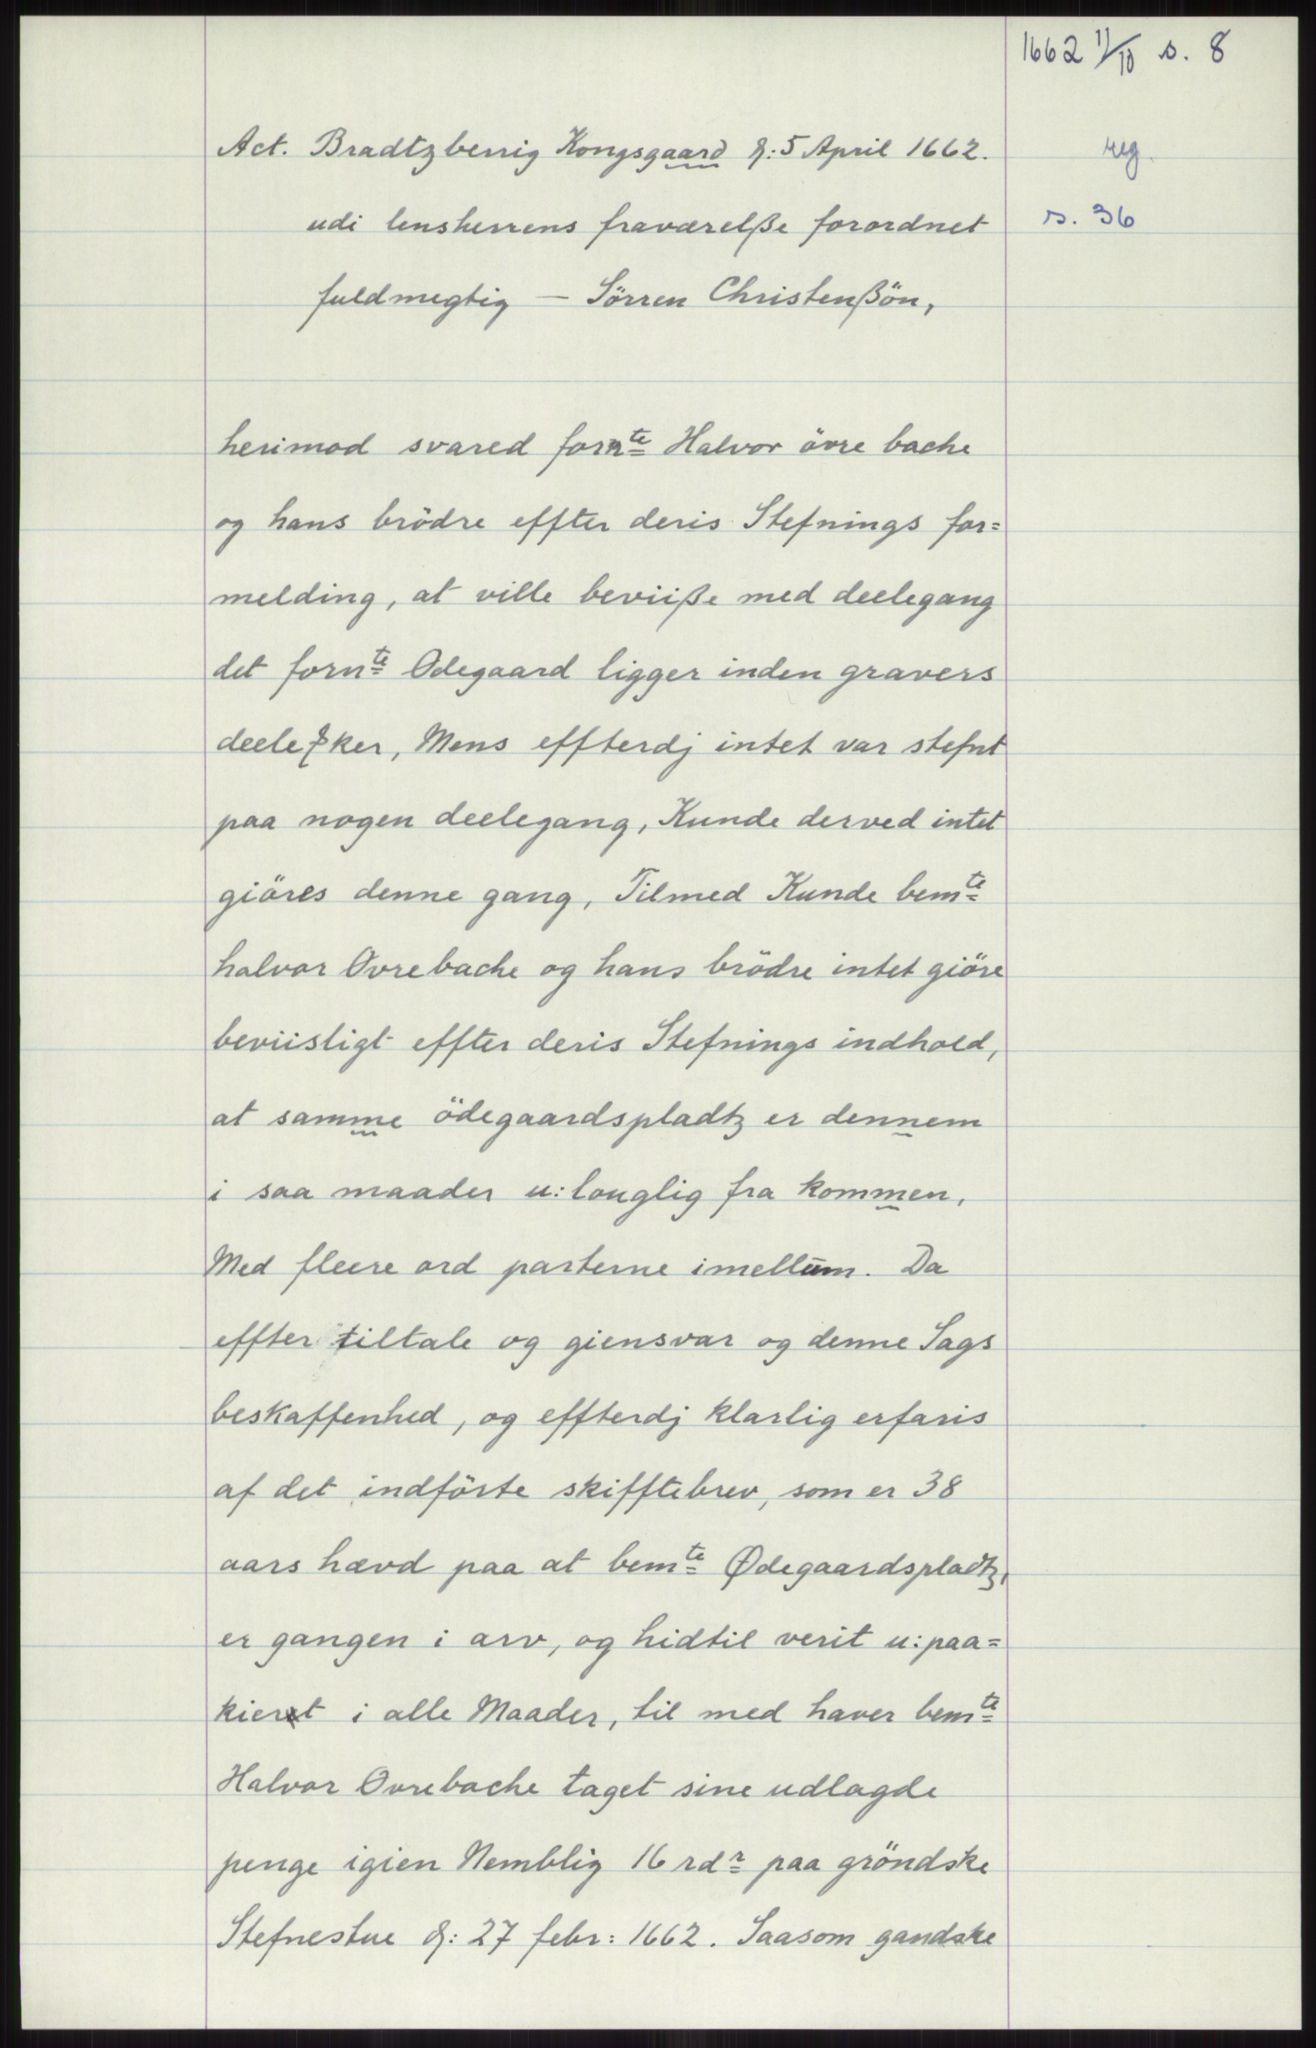 1662 11/10 s. 8
Act. Bradtzberrig Kongsgaard d: 5 April 1662.
reg.
udi lensherrens fraværelße forordnet
s. 36
fuldmegtig — Sörren Christenßön,
herimod svared fornte Halvor övre bache
og hans brödre effter deris Stefnings for=
melding, at ville beviiße med deelegang
det fornte Odegaard ligger inden gravers
deeleßker, Mens effterdj intet var stefnt
paa nogen deelegang, Kunde derved intet
giöres denne gang, Tilmed Kunde bemte
halvor Ovrebache og hans brödre intet giöre
beviisligt effter deris Stefnings indhold,
at samme ödegaardspladtz er dennem
i saa maader u:louglig fra kommen,
Med fleere ord parterne imellum. Da
effter tiltale og giensvar og denne Sags
beskaffenhed, og effterdj klarlig erfaris
af det indförte skifftebrev, som er 38
aars hævd paa at bemte Ødegaardspladtz,
er gangen i arv, og hidtil verit u:paa=
kieret i alle Maader, til med haver bemte
Halvor Ovrebache taget sine udlagde
penge igien Nemblig 16 rdr paa gröndske
Stefnestue d: 27 febr: 1662. Saasom gandske